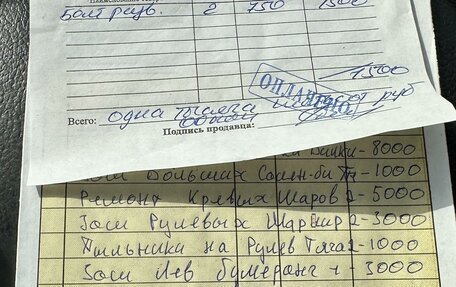 Болт разв. 2 750 1500
1500
ОПЛАЧЕНО
Всего: одна тысяча пятьсот руб
Подпись продавца:
- 8000
Зам Больших Сайлен-бл - 1000
Ремонт Кревых Шаров 2 - 5000
Зам Рулевых Шарнир 2 - 3000
Пыльники на Рулев Тяга - 1000
Зам Лев Бумеранг 1 - 3000